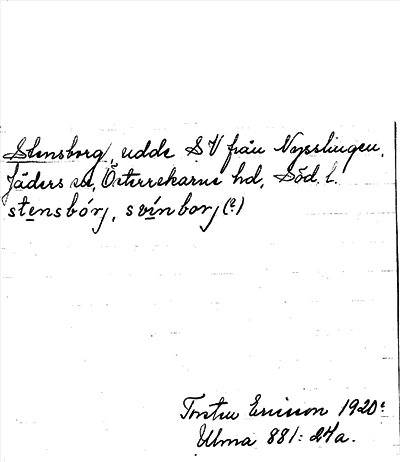 Stensborg, udde SV från Nysslingen,
Jäders sn, Österrekarne hd, Söd. l.
stensbórj, svínborj (?)
Torsten Ericsson 1920.
Ulma 881: 24a.